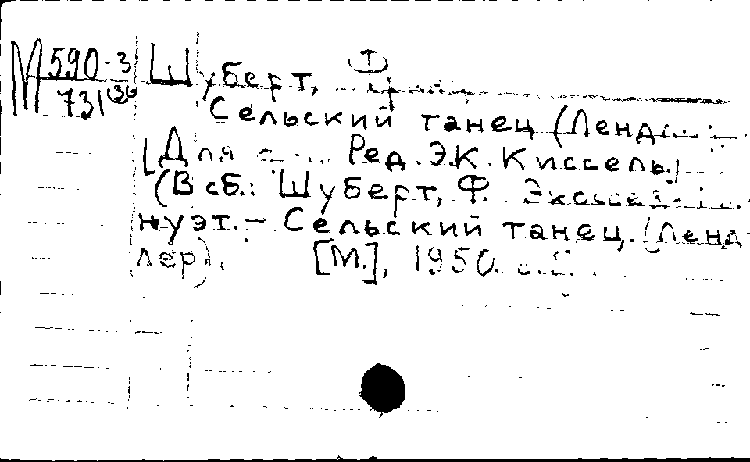 М 590-3 Шуберт, Ф.
731
Сельский танец (Ленд
[Для Ред. Э.К. Киссель.]
(В сб.: Шуберт, Ф.
нуэт. - Сельский танец. (Ленд
лер). [М.], 1950.